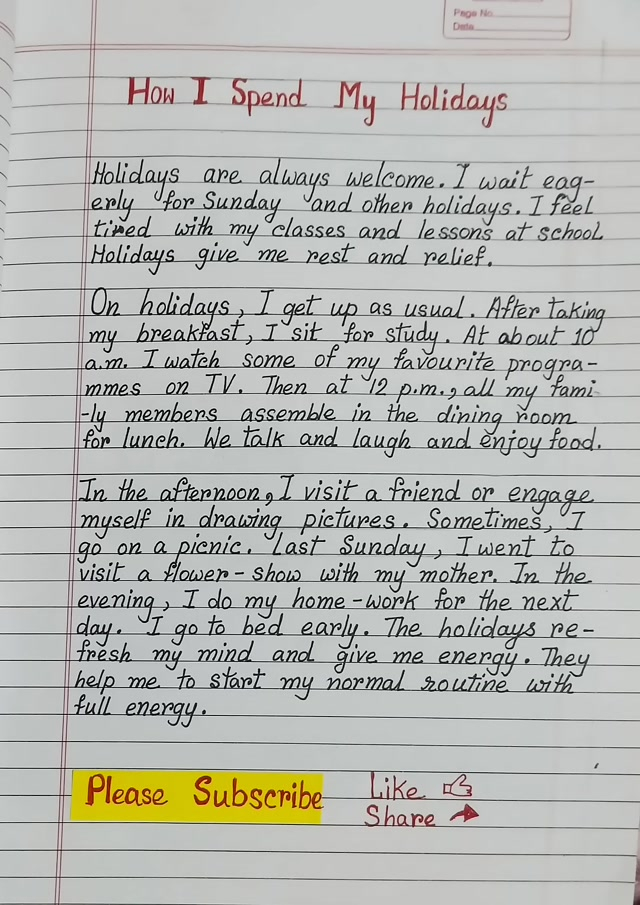 Page No.
Date
How I Spend My Holidays
Holidays are always welcome. I wait eag-
erly for Sunday and other holidays. I feel
tired with my classes and lessons at school
Holidays give me rest and relief.
On holidays, I get up as usual. After taking
my breakfast, I sit for study. At about 10
a.m. I watch some of my favourite progra-
mmes on TV. Then at 12 p.m., all my fami
-ly members assemble in the dining room
for lunch. We talk and laugh and enjoy food.
In the afternoon, I visit a friend or engage
myself in drawing pictures. Sometimes, I
go on a picnic. Last Sunday, I went to
visit a flower-show with my mother. In the
evening, I do my home-work for the next
day. I go to bed early. The holidays re-
fresh my mind and give me energy. They
help me to start my normal routine with
full energy.
Please Subscribe Like
Share